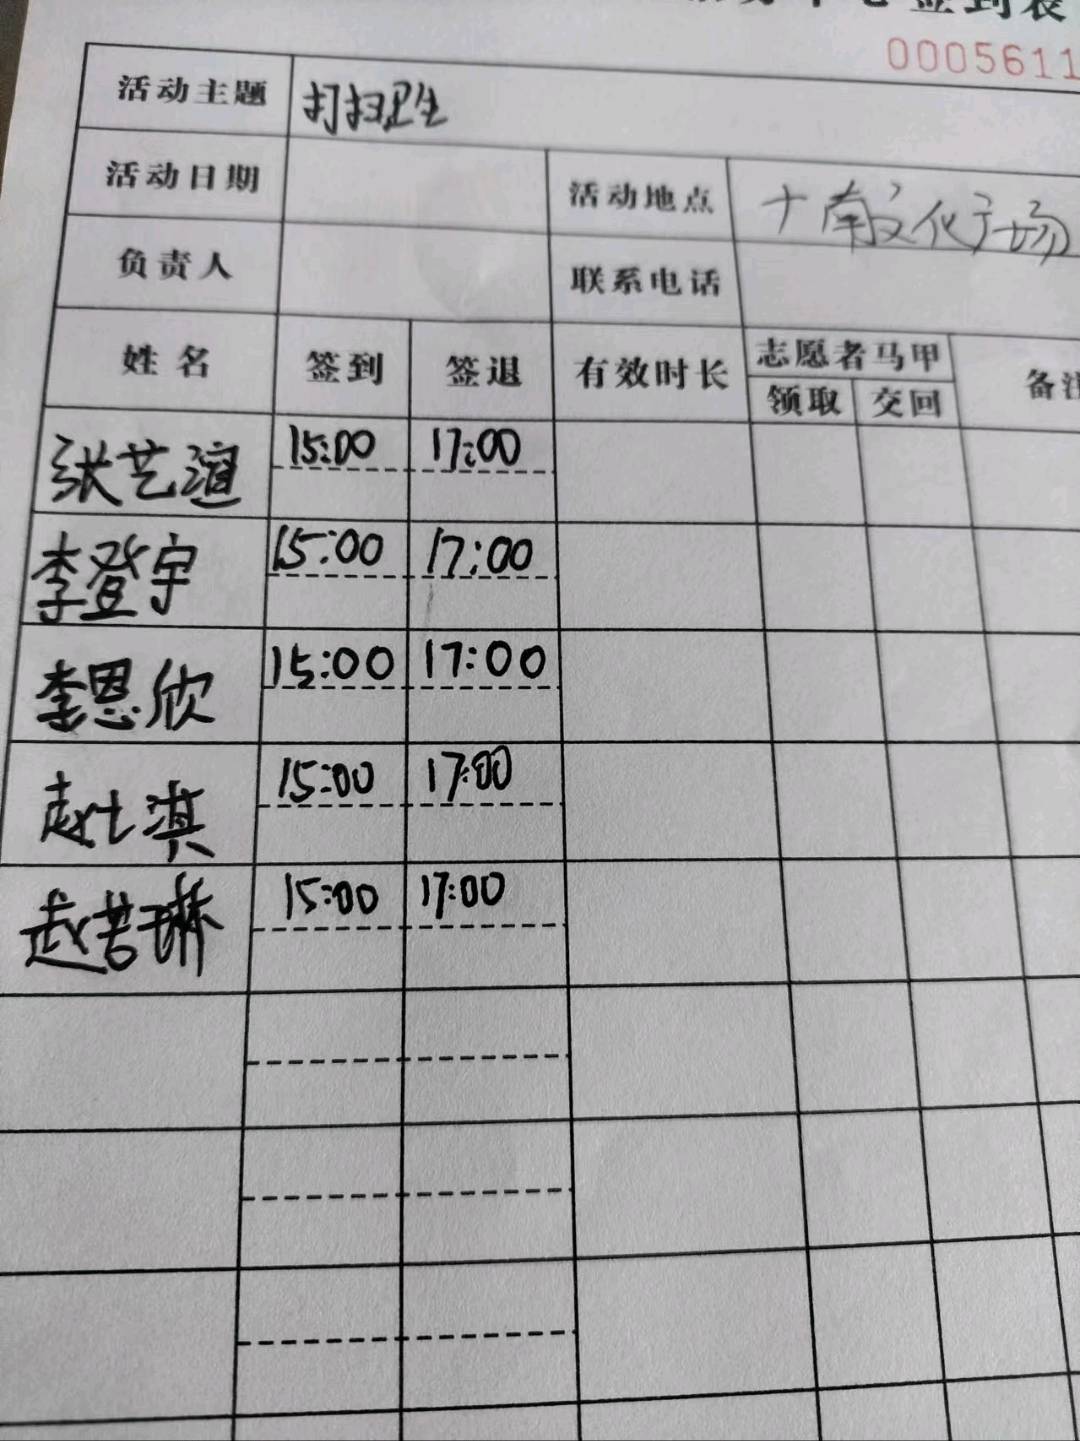 签到表
0005611
活动主题 打扫卫生
活动日期 活动地点 十南文化广场
负责人 联系电话
姓名 签到 签退 有效时长 志愿者马甲 备注
领取 交回
张艺渲 15:00 17:00
李登宇 15:00 17:00
李恩欣 15:00 17:00
赵仕淇 15:00 17:00
赵若琳 15:00 17:00